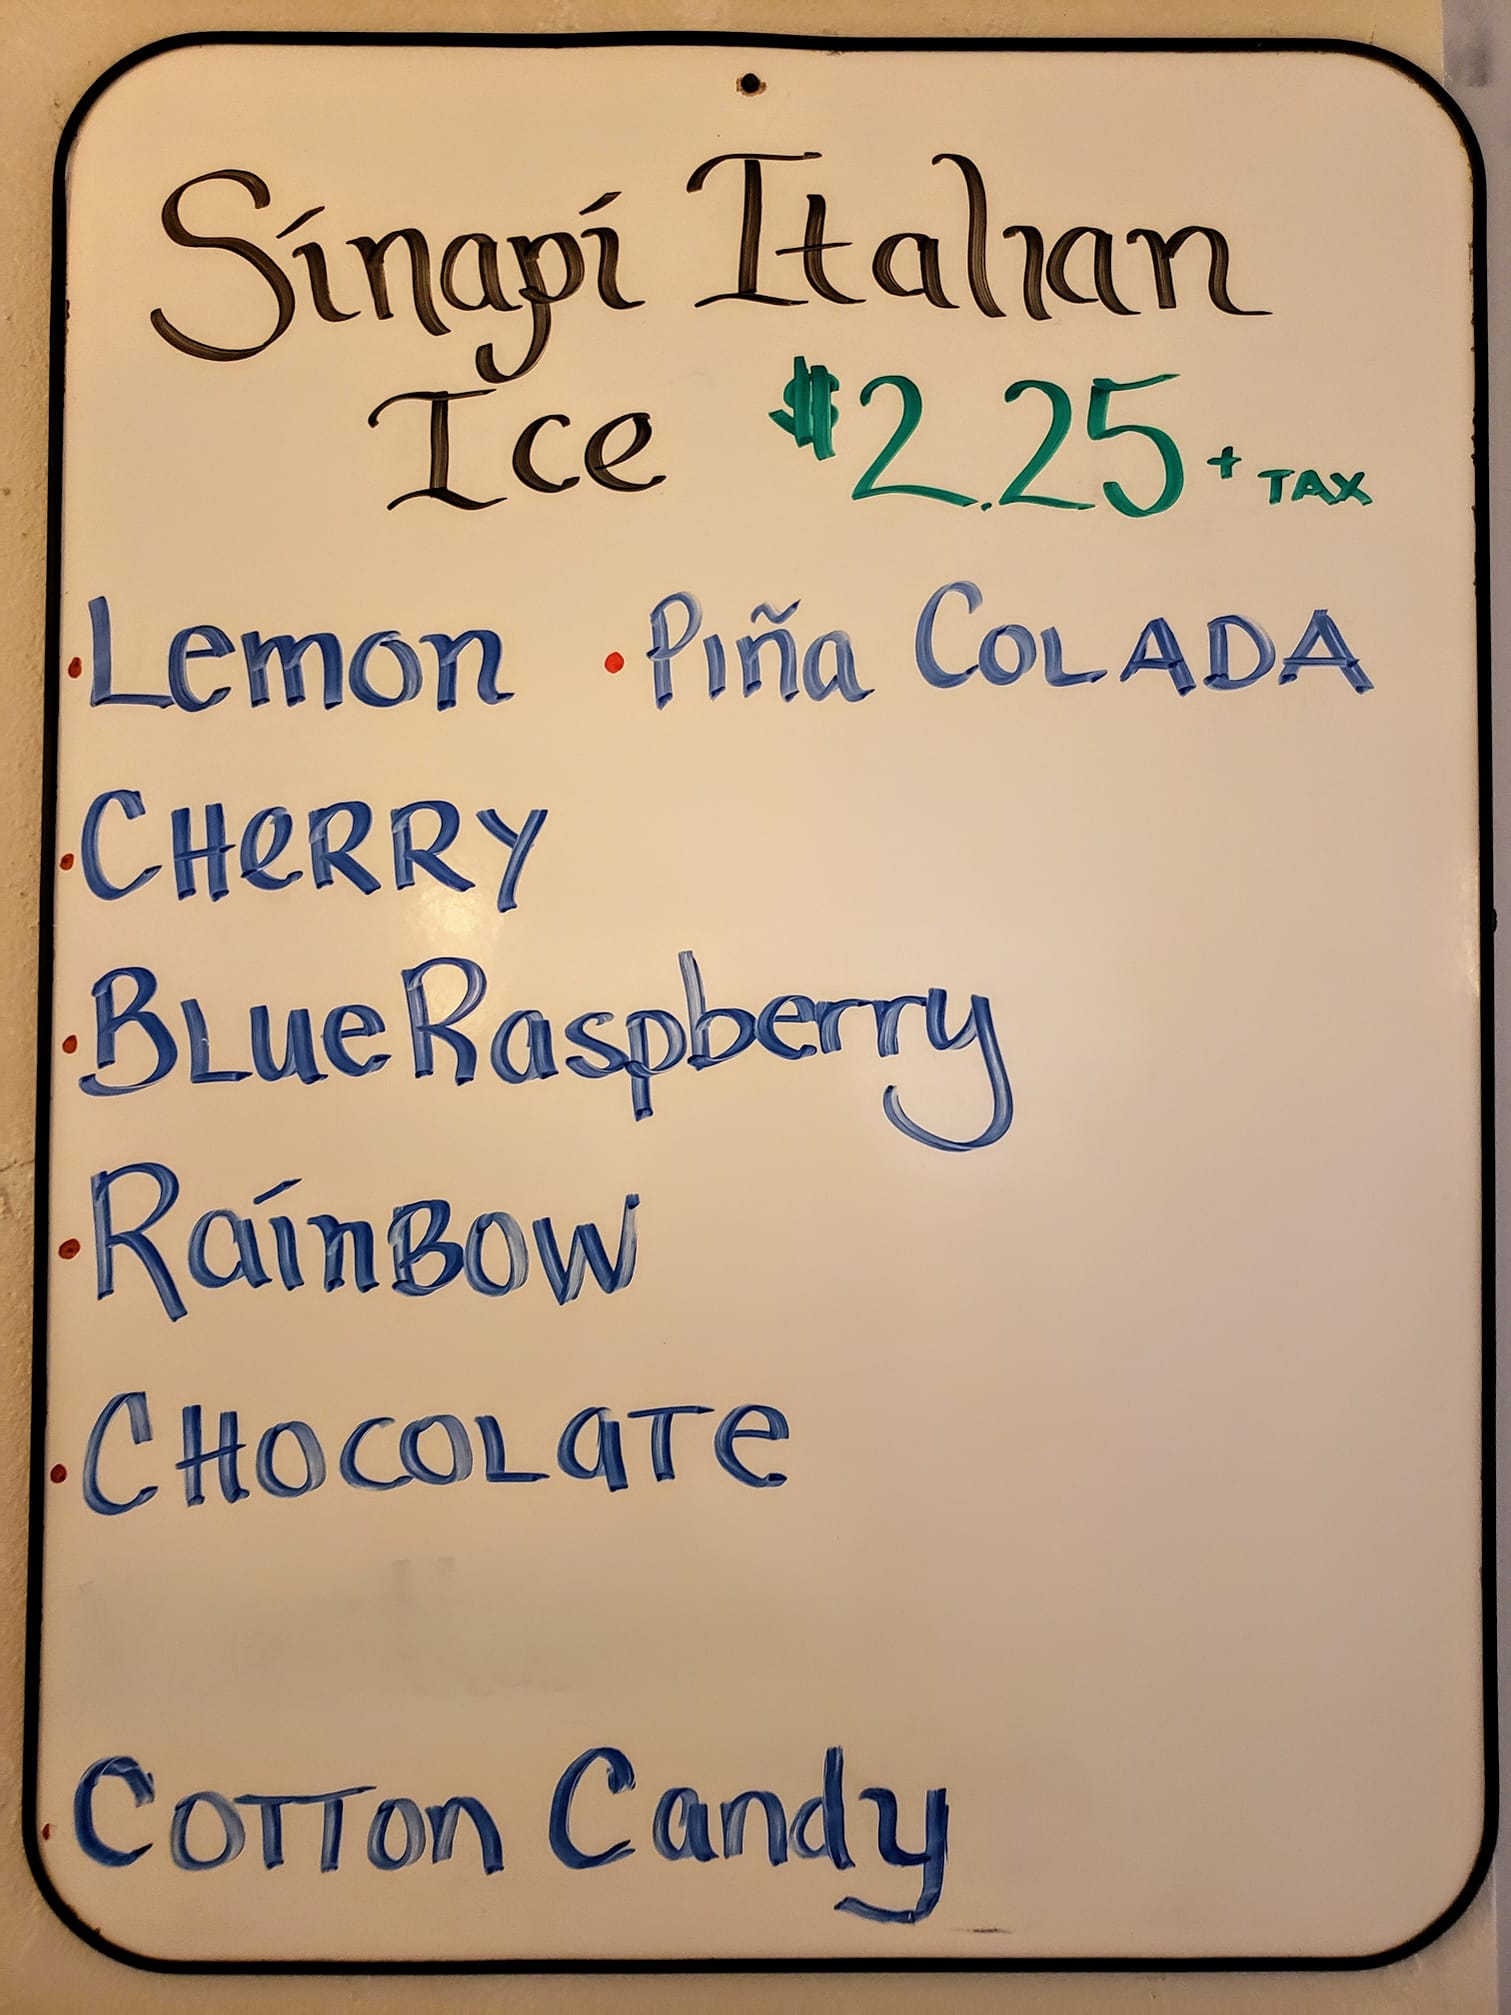 Sinapi Italian
Ice $2.25 + TAX
• Lemon • Piña COLADA
• CHeRRY
• BLue Raspberry
• RainBOW
• CHOCOLaTe
• COTTon Candy